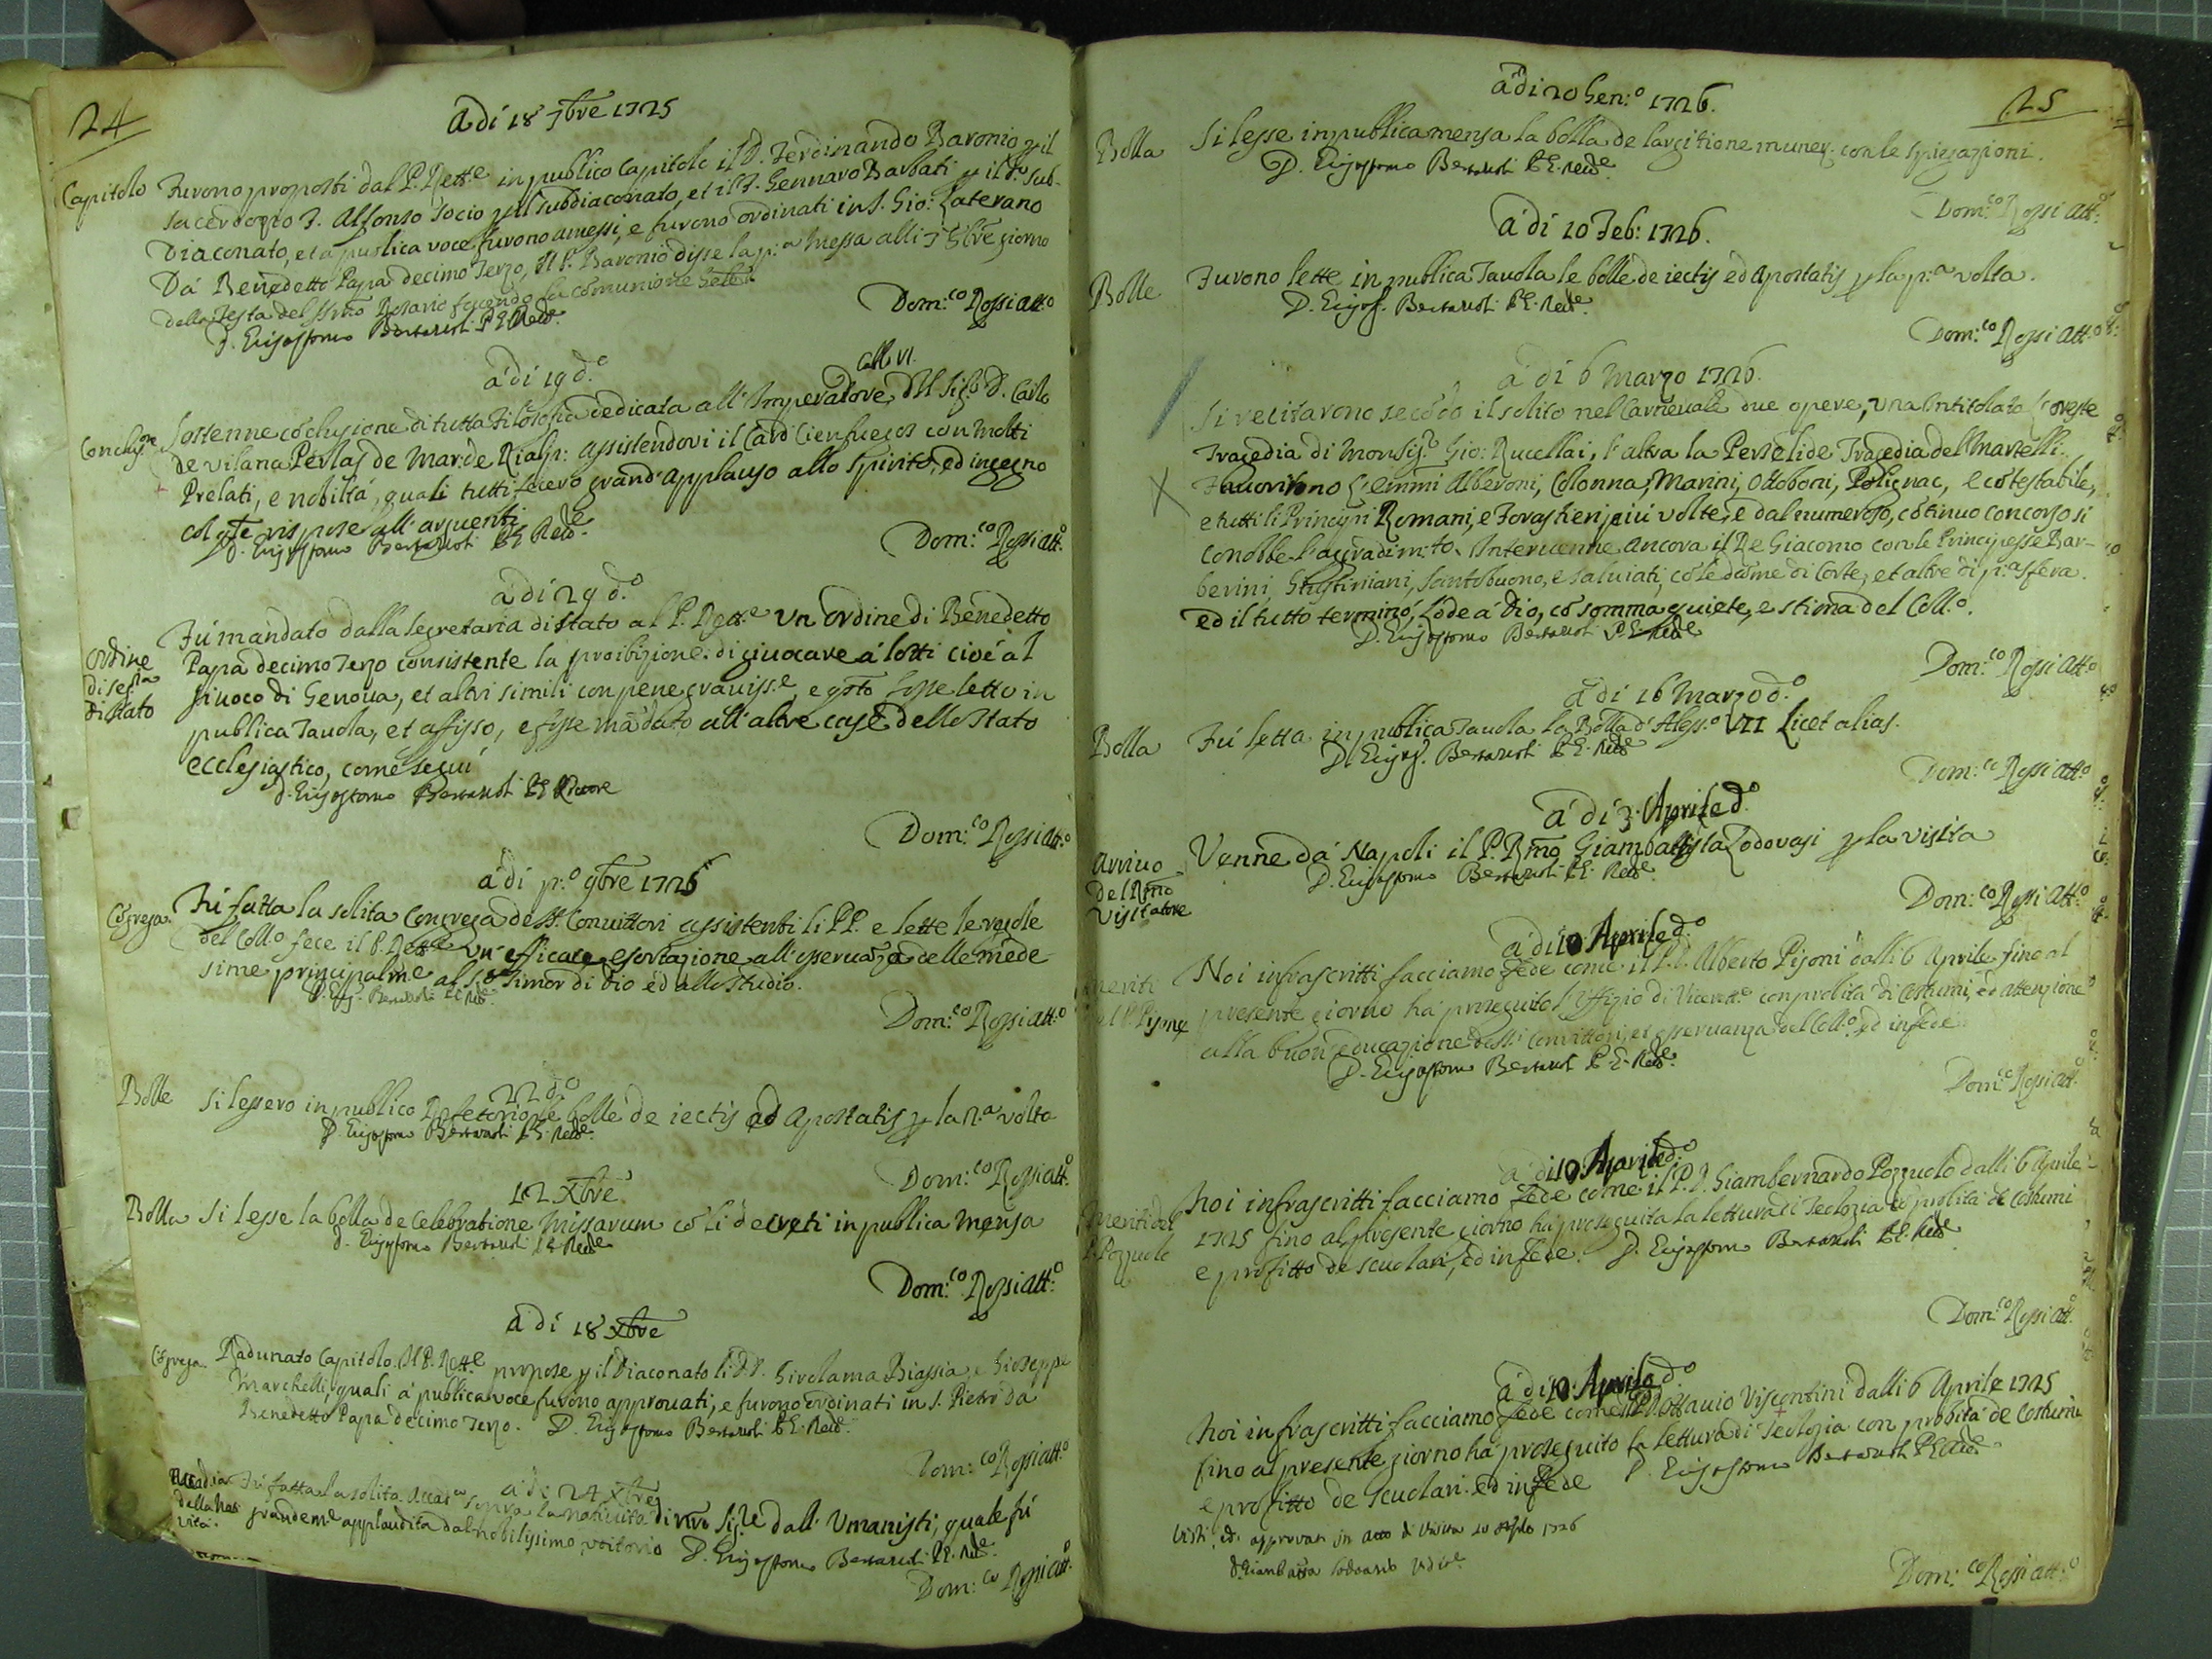 24
a di 18 7bre 1725
Capitolo Furono proposti dal P. Rett.e in publico Capitolo il D. Ferdinando Baronio p il
sacerdozio F. Alfonso Socio p il subdiaconato, et il F. Gennaro Barbati p il d.o sub-
diaconato, et a publica voce furono amessi, e furono ordinati in S. Gio: Laterano
Da Benedetto Papa decimo Terzo, Il P. Baronio disse la p:a Messa alli 7 8bre giorno
della Festa del SSmo Rosario facendo la comunione
D. Grisostomo Bertazzoli P.E. Rett.e
Dom:co Rossi Att:o
a di 19 d.o
Conclus.ne Sostenne coclusione di tutta Filosofia dedicata all' Imperatore Carlo VI. Il Sig.r D. Carlo
de Vilana Perlas de Mar: de Rialp: assistendovi il Card Cienfuegos con molti
Prelati, e nobiltá, quali tutti fecero grand' applauso allo spirito, ed ingegno
col qle rispose all' arguenti
D. Grisostomo Bertazzoli P.E. Rett.e
Dom:co Rossi Att:o
a di 29 d.o
ordine di seg.ria di stato
Fú mandato dalla segretaria di stato al P. Rett.e un ordine di Benedetto
Papa decimo Terzo consistente la proibizione di giuocare á lotti cioé al
giuoco di Genova, et altri simili con pene graviss.e, e qsto fosse letto in
publica Tavola, et affisso, e fosse mãdato all' altre case dello Stato
ecclesiastico, come seguí
d. Grisostomo Bertazzoli P.E. Rettore
Dom:co Rossi Att:o
a di p:o 9bre 1725
Cõgrega. Fú fatta la solita Congrega de SS. Convittori assistenti li PP. e lette le regole
del Coll.o fece il P. Rett.e un' efficace esortazione all' osservãza delle mede
sime principalme al sto timor di Dio ed allo studio.
D. Gris. Bertazzoli P.E. Rett.e
Dom:co Rossi Att:o
22 d.o
Bolle Si lessero in publico Refetorio le bolle de iectis ed apostatis p la p:a volta
D. Grisostomo Bertazzoli P.E. Rett.e
Dom:co Rossi Att:o
12 Xbre
Bolla Si lesse la bolla de Celebratione Missarum cõ li decreti in publica mensa
d. Grisostomo Bertazzoli P.E. Rett.e
Dom:co Rossi Att:o
a di 18 Xbre
Cõgrega. Radunato Capitolo. Il P. Rett.e propose p il Diaconato li DD. Girolama Biassia, e Gioseppe
Marchelli, quali a publica voce furono approvati, e furono ordinati in S. Pietro da
Benedetto Papa decimo Terzo. D. Grisostomo Bertazzoli P.E. Rett.e
Dom:co Rossi Att:o
a di 24 Xbre
Accadia della Nativitá. Fú fatta la solita Accad.a sopra la nativitá di nro Sig.re dall' Umanisti, quale fú
grandem.e applaudita dal nobilissimo uditorio D. Grisostomo Bertazzoli P.E. Rett.e
Dom:co Rossi Att:o
25
a di 20 Gen:o 1726.
Bolla Si lesse in publica mensa la bolla de largitione muner. con le spiegazioni.
D. Grisostomo Bertazzoli P.E. Rett.e
Dom:co Rossi Att:o
a di 20 Feb: 1726.
Bolle Furono lette in publica Tavola le bolle de iectis ed apostatis p la p:a volta.
D. Grisos. Bertazzoli P.E. Rett.e
Dom:co Rossi Att:o
a di 6 Marzo 1726.
Si recitarono secõdo il solito nel Carnevale due opere, una intitolata l'Oreste
Tragedia di Monsig.r Gio: Rucellai, l'altra la Perselide Tragedia del Martelli.
Favorirono gl'emmi Alberoni, Colonna, Marini, Ottoboni, Polignac, e cõtestabile,
e tutti li Principi Romani, e Forastieri piú volte, e dal numeroso, cõtinuo concorso si
conobbe l'aggradim.to. Intervenne ancora il Re Giacomo con le Principesse Bar-
berini, Giustiniani, Santobuono, e Salviati, cõ le dame di Corte, et altre di p:a sfera.
ed il tutto terminó, Lode á Dio, cõ somma quiete, e stima del Coll.o.
D. Grisostomo Bertazzoli P.E. Rett.e
Dom:co Rossi Att:o
a di 16 Marzo d.o
Bolla Fú letta in publica Tavola la Bolla d'Aless.o VII Licet alias.
D. Grisos. Bertazzoli P.E. Rett.e
Dom:co Rossi Att:o
a di 3. Aprile d.o
Arrivo del Rmo Visitatore
Venne da Napoli il P. Rmo Giambattista Lodovasi p la visita
D. Grisostomo Bertazzoli P.E. Rett.e
Dom:co Rossi Att:o
a di 10 Aprile d.o
meriti del P. Pisone
Noi infrascritti facciamo fede come il P.D. Alberto Pisoni dalli 6 Aprile fino al
presente giorno ha proseguito l'Uffizio di Vicerett.e con probitá di Costumi, ed attenzione
alla buon' educazione delli convittori, et osservanza del Coll.o ed in fede
D. Grisostomo Bertazzoli P.E. Rett.e
Dom:co Rossi Att:o
a di 10 Aprile d.o
Meriti del P. Pozzuolo
Noi infrascritti facciamo fede come il P.D. Giambernardo Pozzuolo dalli 6 Aprile
1725 fino al presente giorno há proseguita la lettura di Teologia cõ probitá de Costumi
e profitto de scuolari, ed in fede. D. Grisostomo Bertazzoli P.E. Rett.e
Dom:co Rossi Att:o
a di 10 Aprile d.o
Noi infrascritti facciamo fede come il P.D. Ottavio Viscontini dalli 6 Aprile 1725
fino al presente giorno há proseguito la lettura di Teologia con probitá de Costumi
e profitto de scuolari. ed in fede D. Grisostomo Bertazzoli P.E. Rett.e
Visti, ed approvati in atto di Visita 10 Aprile 1726
D. Giambatta Lodovasi Visit.e
Dom:co Rossi Att:o